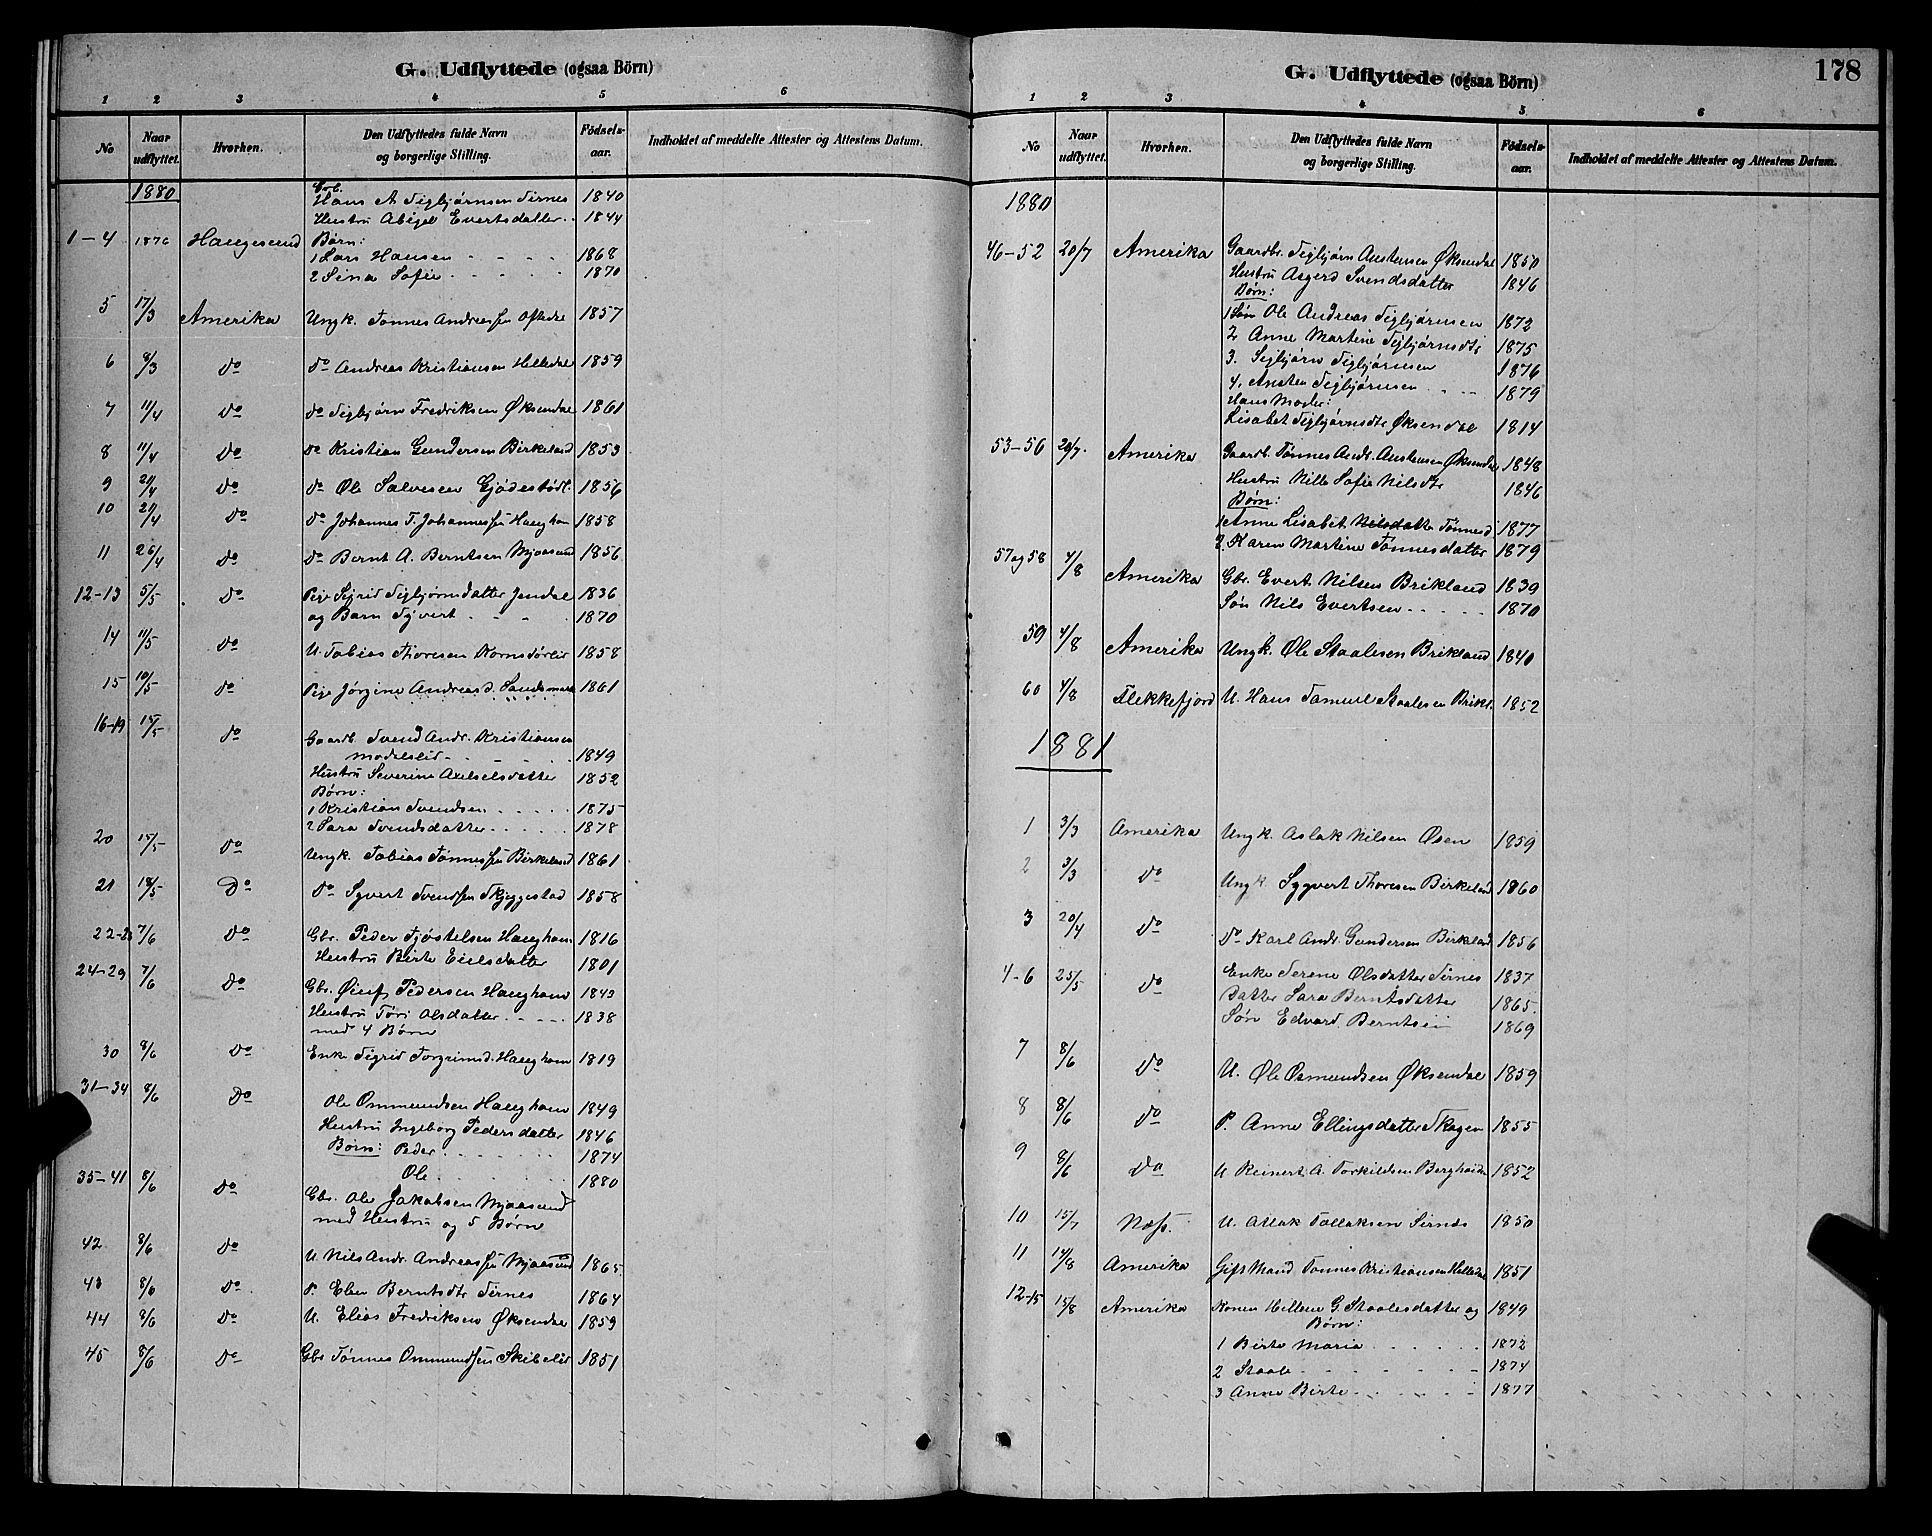 G. Udflyttede (ogsaa Börn)
1 2 3 4 5 6
No
Naar udflyttet.
Hvorhen.
Den Udflyttedes fulde Navn og borgerlige Stilling.
Födsels-aar.
Indholdet af meddelte Attester og Attestens Datum.
1880 Gbr.
Hans A Sigbjørnsen Sirnes 1840
Hustru Abigel Evertsdatter 1844
1-4 1876 Haugesund Børn:
1 Lars Hansen 1868
2 Sina Sofie 1870
5 17/3 Amerika Ungk. Tønnes Andreassen 1857
6 8/3 do do Andreas Kristiansen Helledal 1859
7 11/4 do do Sigbjørn Fredriksen Øksendal 1861
8 11/4 do do Kristian Gundersen Birkeland 1853
9 21/4 do do Ole Salvesen Gjødestøl 1856
10 21/4 do do Johannes T. Johannessen Haughom 1858
11 26/4 do do Bernt A. Berntsen Mjaasund 1856
12-13 5/5 do Pige Sigrid Sigbjørnsdatter 1836
og Barn Syvert 1870
14 11/5 do U. Tobias Thoresen 1858
15 10/5 do Pige Jørgine Andreasd. Sandsmark 1861
16-19 15/5 do Gaardb. Svend Andr. Kristiansen
1849
Hustru Severine Axelselsdatter 1852
Børn:
1 Kristian Svendsen 1875
2 Sara Svendsdatter 1878
20 15/5 do Ungk. Tobias Tønnessen Birkeland 1861
21 18/5 Do do Syvert Svendsen Skjeggestad 1858
22-23 7/6 Do Gbr. Peder Fjøstelsen Haughom 1816
Hustru Birte Eielsdatter 1801
24-29 7/6 Do Gbr. Pedersen Haughom 1843
Hustru Tøri Olsdatter 1838
med 4 Børn
30 8/6 Do Enke Sigrid Torgrimsd. Haughom 1819
31-34 8/6 Do Ole Ommundsen Haughom 1849
Hustru Ingeborg Pedersdatter 1846
Børn: Peder 1874
Ole 1880
35-41 8/6 Do Gbr. Ole Jakobsen Mjaasund
med Hustru og 5 Børn
42 8/6 Do U. Nils Andr. Andreassen Mjaasund 1865
43 8/6 Do P. Elen Berntsdtr Sirnes 1864
44 8/6 Do U. Elias Fredriksen Øksendal 1859
45 8/6 Do Gbr Tønnes Ommundsen Skibelid 1851
G. Udflyttede (ogsaa Börn)
178
1 2 3 4 5 6
No
Naar udflyttet.
Hvorhen.
Den Udflyttedes fulde Navn og borgerlige Stilling.
Födsels-aar.
Indholdet af meddelte Attester og Attestens Datum.
1880
46-52 20/7 Amerika Gaardbr. Sigbjørn Austensen Øksendal 1850
Hustru Asgerd Svendsdatter 1846
Børn:
1 Søn Ole Andreas Sigbjørnsen 1872
2 Anne Martine Sigbjørnsdtr 1875
3. Sigbjørn Sigbjørnsen 1876
4, Austen Sigbjørnsen 1879
Hans Moder:
Lisabet Sigbjørnsdtr Øksendal 1814
53-56 20/7. Amerika Gaardb. Tønnes Andr. Austensen Øksendal 1848
Hustru Nille Sofie Nilsdtr 1846
Børn:
1 Anne Lisabet Nilsdatte Tønnesd 1877
2. Karen Martine Tønnesdatter 1879
57 og 58 4/8 Amerika Gbr. Evert Nilsen Brikland 1839
Søn Nils Evertsen 1870
59 4/8 Amerika Ungk. Ole Staalesen Brikland 1840
60 4/8 Flekkefjord U. Hans Samuel Staalesen Brikl. 1852
1881
1 3/3 Amerika Ungk. Aslak Nilsen Øsen 1859
2 3/3 do Ungk. Sygvert Thoresen Birkeland 1860
3 20/4 do do Karl Andr. Gundersen Birkeland 1856
4-6 25/5 do Enke Serene Olsdatter Sirnes 1837
Datter Sara Berntsdatter 1865.
Søn Edvard Berntsen 1869
7 8/6 Do U. Ole Osmundsen Øksendal 1859
8 8/6 do P. Anne Ellingsdatter Skagen 1855
9 8/6 Do U Reinert A. Torkildsen Berghom 1852
10 15/7 Næs. U. Atlak Tallaksen Sirnes 1850
11 14/8 Amerika Gift Mand Tønnes Kristiansen Helledal 1851
12-15 15/8 Amerika Konen Hellene G. Staalesdatter og 1849
Børn:
1 Birte Maria 1872
2 Staale 1874
3 Anne Birte 1877